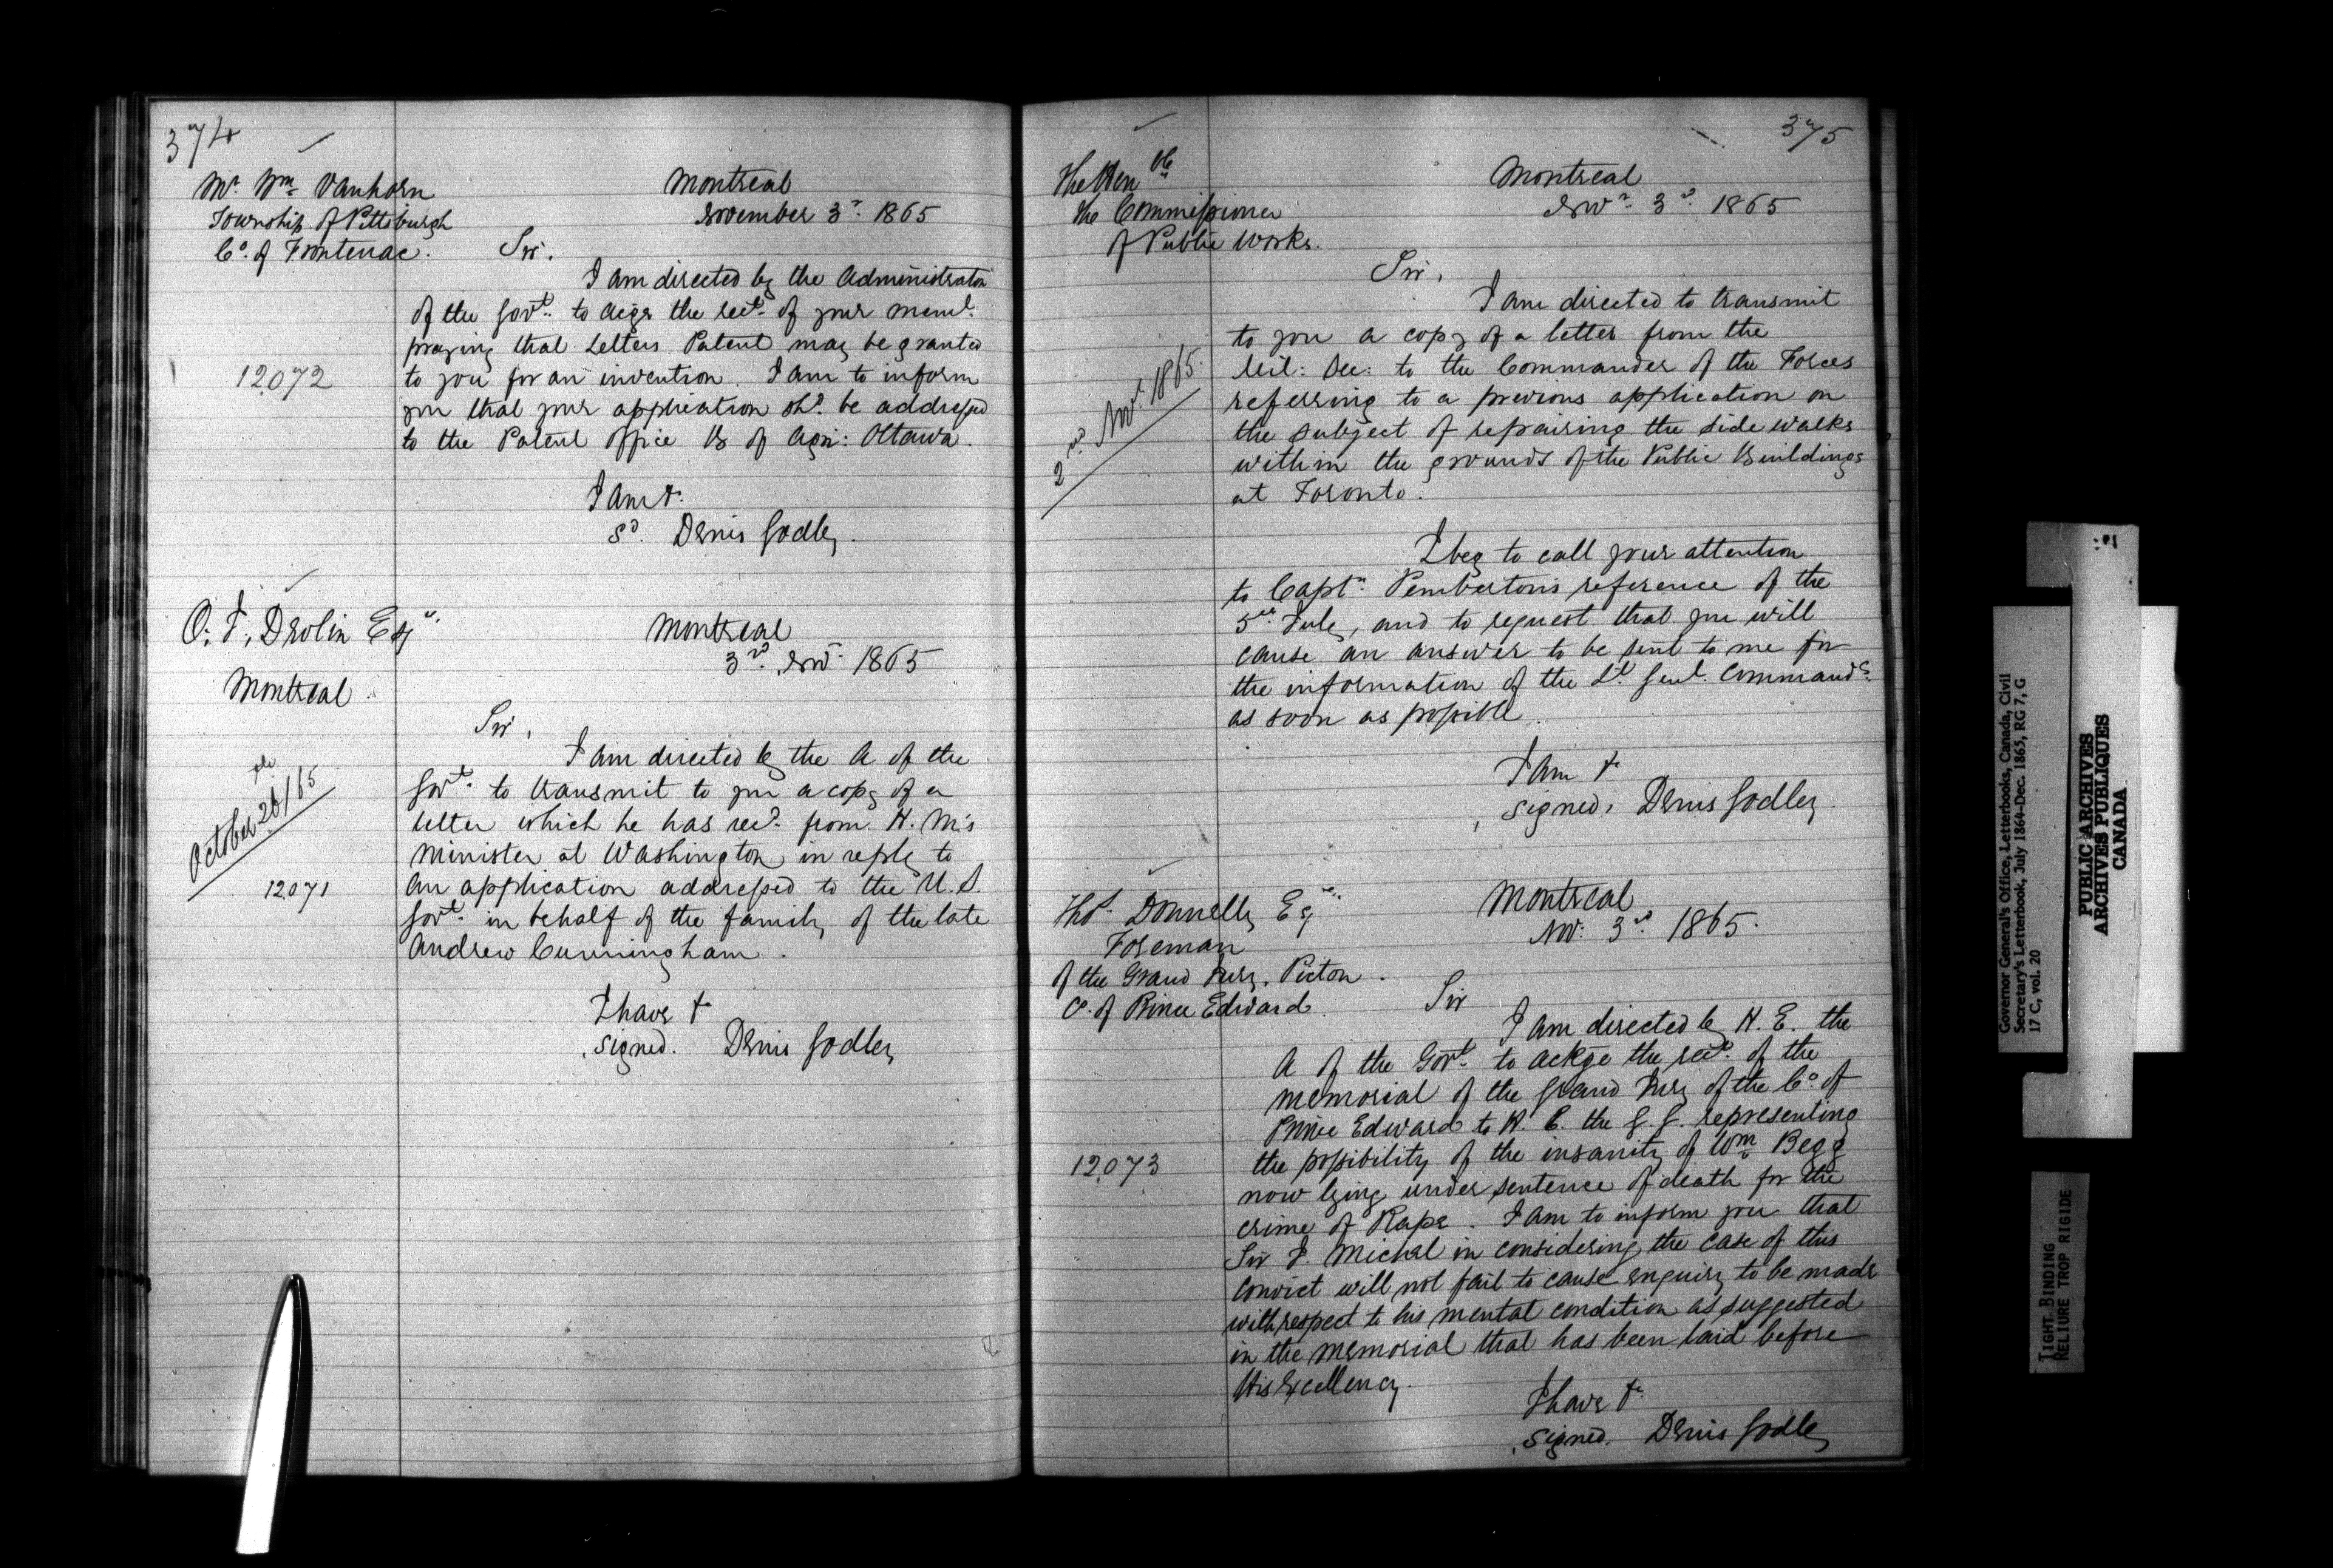 374
Mr. Wm. Vanhorn
Township of Pittsburgh
Co. of Frontenac.
Montreal
November 3rd. 1865
Sir.
I am directed by the Administrator
of the Govt. to acge the rect. of your meml.
praying that Letters Patent may be granted
12,072
to you for an invention. I am to inform
you that your application shd. be addressed
to the Patent Office B of Agri: Ottawa.
I am &.
Sd. Denis Godley.
O. F. Drolin Esqr.
Montreal.
Montreal
3rd. Nov. 1865
Sir,
October 26th/65
12,071
I am directed by the A of the
Govt. to transmit to you a copy of a
letter which he has recd. from H. M's
Minister at Washington, in reply to
an application addressed to the U.S.
Govt. in behalf of the family of the late
Andrew Cunningham.
I have &
signed. Denis Godley
375
The Honble
the Commissioner
of Public Works.
Montreal
Nov. 3rd. 1865
Sir,
2nd Nov. 1865.
I am directed to transmit
to you a copy of a letter from the
Mil: Sec: to the Commander of the Forces
referring to a previous application on
the subject of repairing the side walks
within the grounds of the Public Buildings
at Toronto.
I beg to call your attention
to Captn. Pemberton's reference of the
5th. July, and to request that you will
cause an answer to be sent to me for
the information of the Lt. Genl. Commandg.
as soon as possible.
I am &
signed, Denis Godley.
Thos. Donnelly Esqr.
Foreman
of the Grand Jury, Picton.
Co. of Prince Edward.
Montreal
Nov. 3rd. 1865.
Sir
12,073
I am directed by H. E. the
A of the Govt. to ackge the rect. of the
memorial of the Grand Jury of the Co. of
Prince Edward to H. E. the G. G. representing
the possibility of the insanity of Wm. Begg
now lying under sentence of death for the
crime of Rape. I am to inform you that
Sir J. Michel in considering the case of this
convict will not fail to cause enquiry to be made
with respect to his mental condition as suggested
in the memorial that has been laid before
His Excellency.
I have &.
signed. Denis Godley
Governor General's Office, Letterbooks, Canada, Civil
Secretary's Letterbook, July 1864-Dec. 1865, RG 7, G
17 C, vol. 20
PUBLIC ARCHIVES
ARCHIVES PUBLIQUES
CANADA
TIGHT BINDING
RELIURE TROP RIGIDE